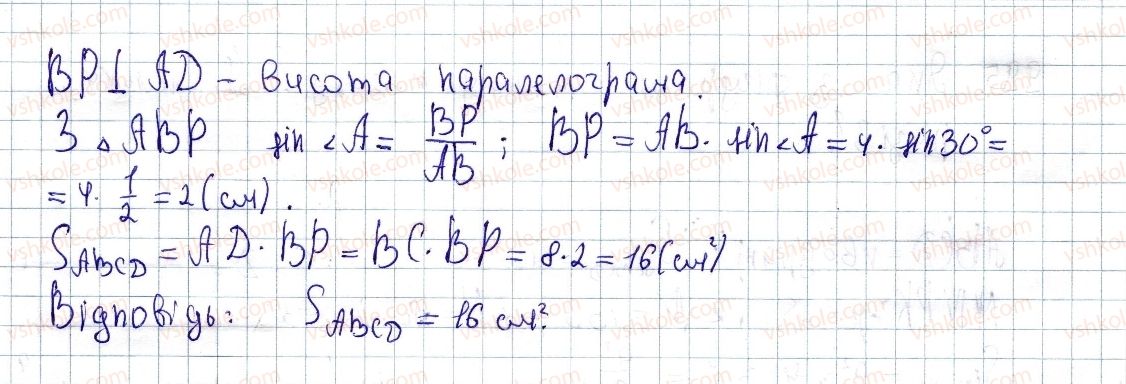 BP⊥ AD - висота паралелограма.
З △ ABP sin ∠A = BP/AB ; BP = AB · sin∠A = 4 · sin30° =
= 4 · 1/2 = 2 (см).
S_ABCD = AD · BP = BC · BP = 8 · 2 = 16 (см²)
Відповідь: S_ABCD = 16 см².